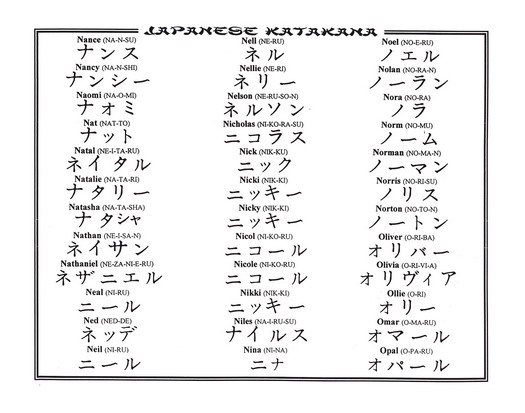 JAPANESE KATAKANA
Nance (NA-N-SU)
ナンス
Nancy (NA-N-SHI)
ナンシー
Naomi (NA-O-MI)
ナオミ
Nat (NAT-TO)
ナット
Natal (NE-I-TA-RU)
ネイタル
Natalie (NA-TA-RI)
ナタリー
Natasha (NA-TA-SHA)
ナタシャ
Nathan (NE-I-SA-N)
ネイサン
Nathaniel (NE-ZA-NI-E-RU)
ネザニエル
Neal (NI-RU)
ニール
Ned (NED-DE)
ネッデ
Neil (NI-RU)
ニール
Nell (NE-RU)
ネル
Nellie (NE-RI)
ネリー
Nelson (NE-RU-SO-N)
ネルソン
Nicholas (NI-KO-RA-SU)
ニコラス
Nick (NIK-KU)
ニック
Nicki (NIK-KI)
ニッキー
Nicky (NIK-KI)
ニッキー
Nicol (NI-KO-RU)
ニコール
Nicole (NI-KO-RU)
ニコール
Nikki (NIK-KI)
ニッキー
Niles (NA-I-RU-SU)
ナイルス
Nina (NI-NA)
ニナ
Noel (NO-E-RU)
ノエル
Nolan (NO-RA-N)
ノーラン
Nora (NO-RA)
ノラ
Norm (NO-MU)
ノーム
Norman (NO-MA-N)
ノーマン
Norris (NO-RI-SU)
ノリス
Norton (NO-TO-N)
ノートン
Oliver (O-RI-BA)
オリバー
Olivia (O-RI-VI-A)
オリヴィア
Ollie (O-RI)
オリー
Omar (O-MA-RU)
オマール
Opal (O-PA-RU)
オパール